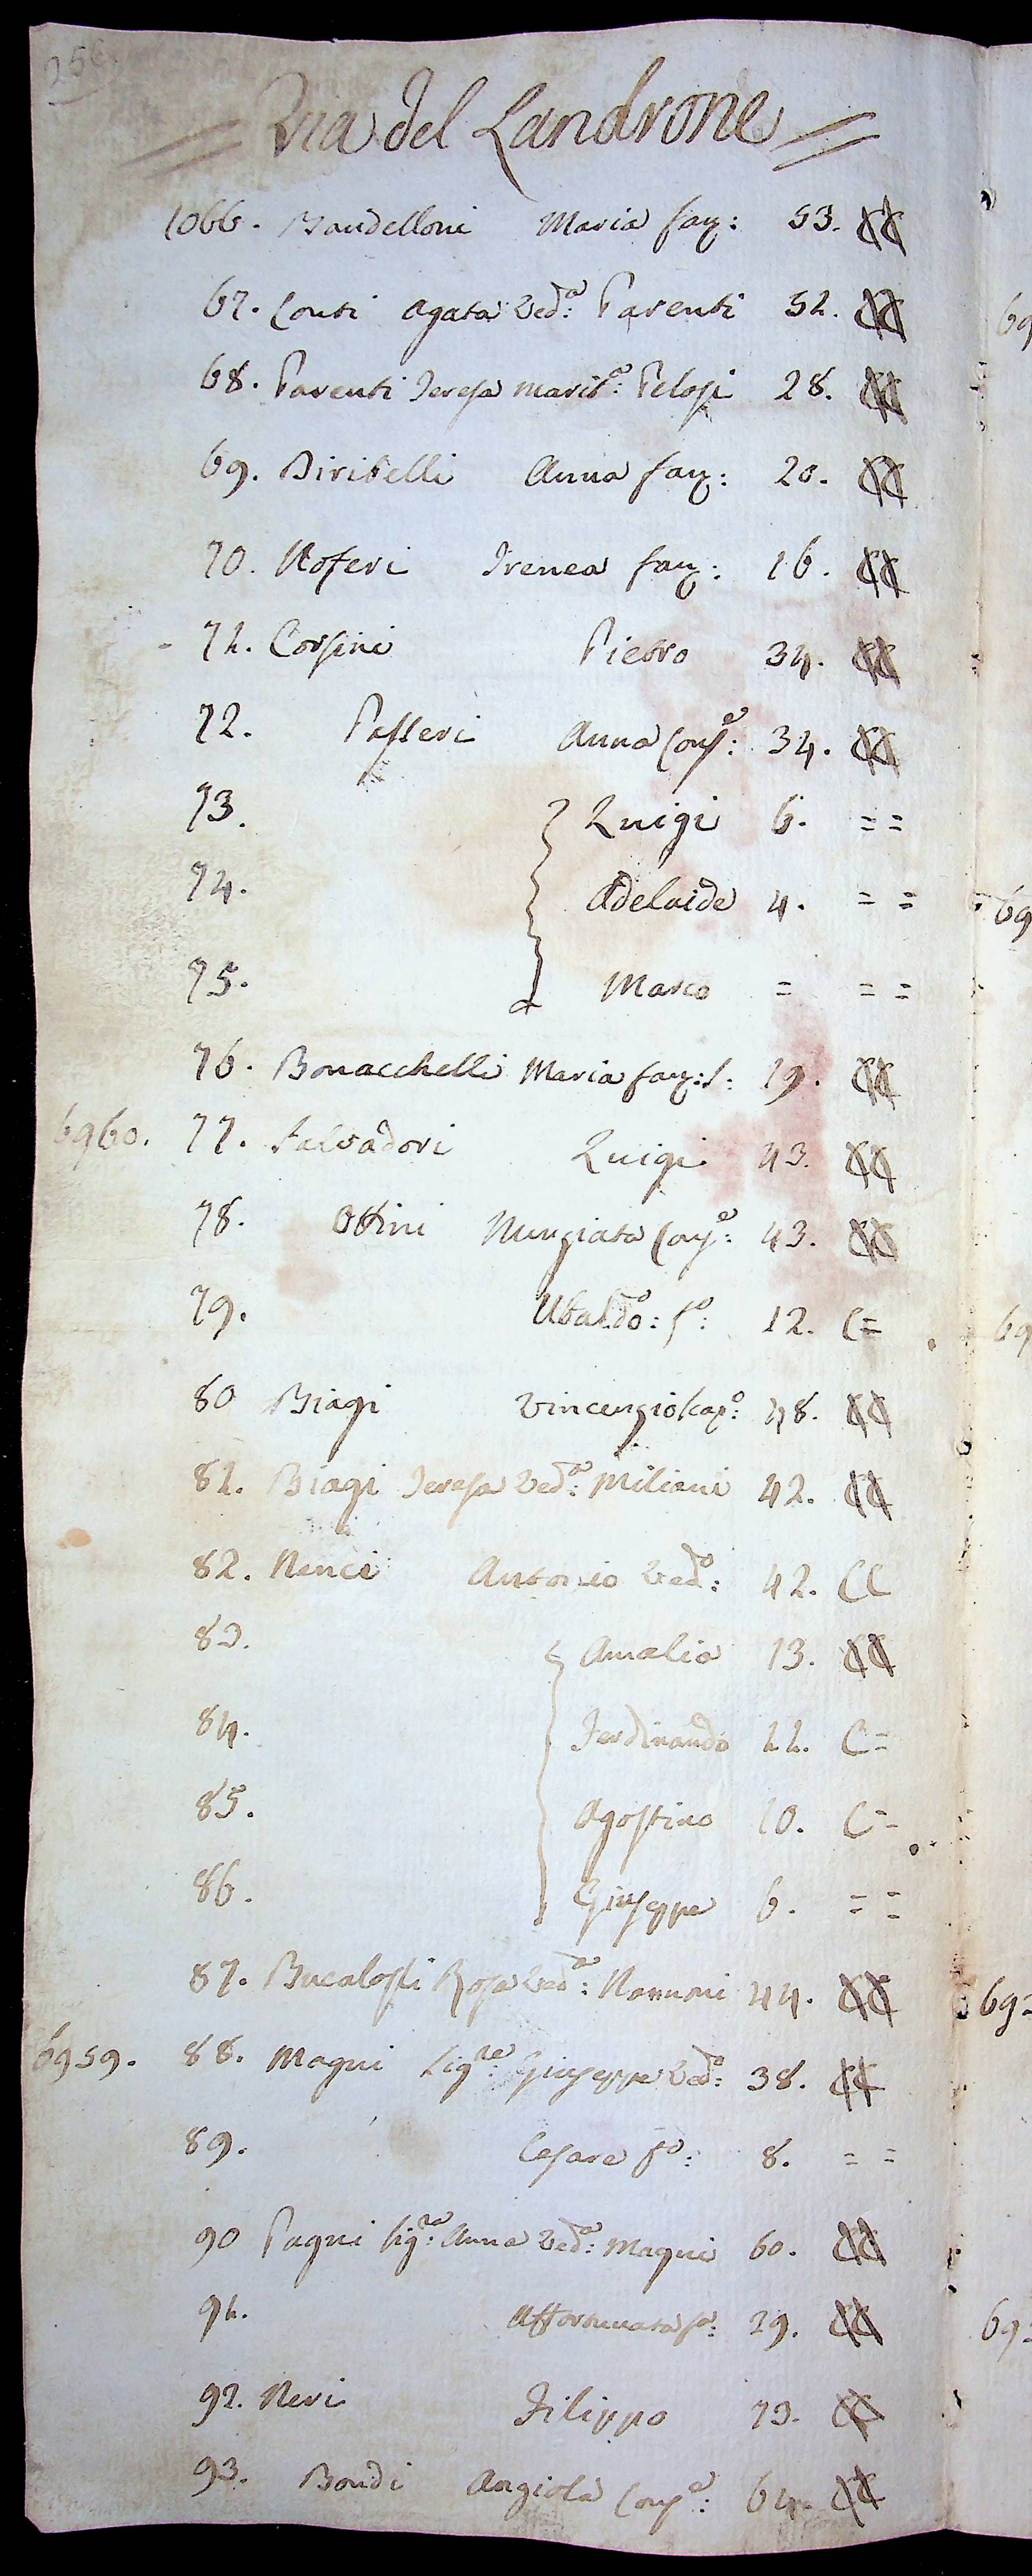 256
= Via del Landrone =
1066. Bandelloni Maria fan: 53. CC
67. Conti Agata Ved.a: Parenti 51. CC
68. Parenti Teresa marit.a: Pelosi 28. CC
69. Biribelli Anna fan: 20. CC
70. Noferi Irenea fan: 16. CC
- 71. Corsini Pietro 34. CC
72. Passeri Anna Cons.e: 34. CC
73. Luigi 6. = =
74. Adelaide 4. = =
75. Marco = = =
76. Bonacchelli Maria fan: S: 19. CC
6960. 77. Salvadori Luigi 43. CC
78. Ottini Nunziata Con.e: 43. CC
79. Ubaldo: f.o: 12. C=
80 Biagi Vincenzio Scap.o: 48. CC
81. Biagi Teresa Ved.a: Miliani 42. CC
82. Nenci Antonio Ved.o: 42. CC
83. Amalia 13. CC
84. Ferdinando 11. C=
85. Agostino 10. C=
86. Giuseppe 6. = =
87. Bucalossi Rosa Ved.a: Nannoni 44. CC
6959. 88. Magni Sig.re: Giuseppe Ved.o: 38. CC
89. Cesare f.o: 8. = =
90 Pagni Sig.ra: Anna Ved.a: Magni 60. CC
91. Affortunata f.a: 29. CC
92. Neri Filippo 73. CC
93. Bondi Angiola Con.e: 64. CC